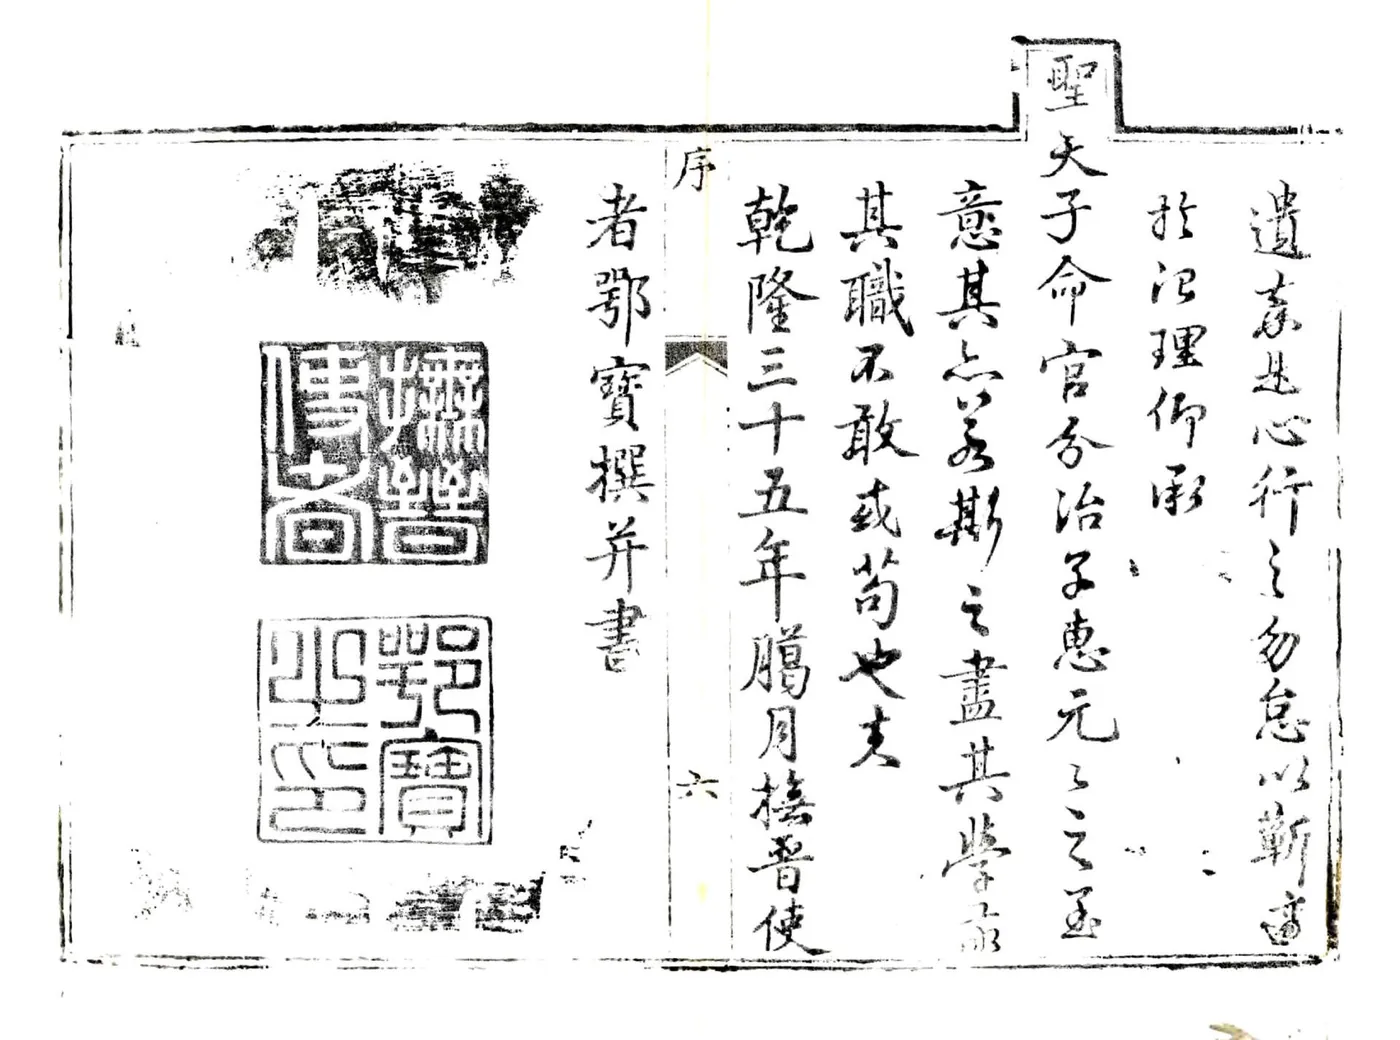 遺是心行之勿怠以蘄適
於治理仰承
聖天子命官分治子惠元々之至
意其亦若斯之盡其學
其職不敢或苟也夫
乾隆三十五年臈月撫晉使
序
六
者鄂寶撰并書
撫晉使者
鄂寶之印